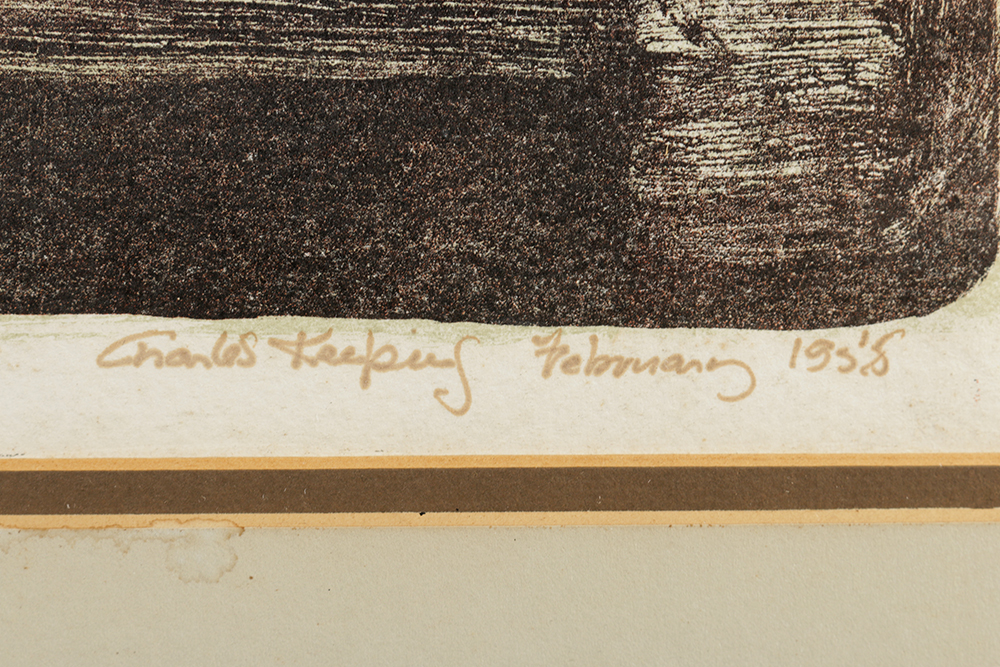 Charles Keeping February 1958